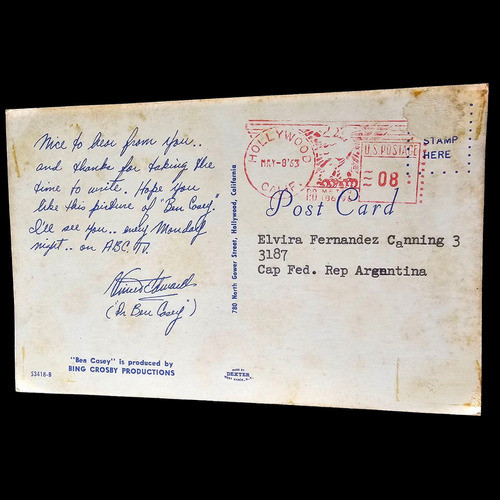 Nice to hear from you..
and thanks for taking the
time to write. Hope you
like this picture of "Ben Casey".
I'll see you.. every Monday
night.. on A.B.C. TV.
(Dr. Ben Casey)
"Ben Casey" is produced by
BING CROSBY PRODUCTIONS
53418-B
780 North Gower Street, Hollywood, California
MADE BY
DEXTER
WEST NYACK, N.Y.
HOLLYWOOD
MAY-8'63
CALIF.
U.S. POSTAGE
08
STAMP
HERE
Post Card
Elvira Fernandez Canning 3
3187
Cap Fed. Rep Argentina